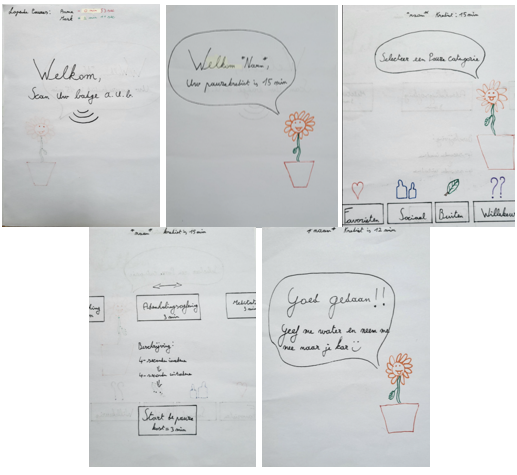 Lopende Pauzes:
Welkom,
Scan uw badge a.u.b
Welkom "Naam",
Uw pauzekrediet is 15 min
"naam" Krediet: 15 min
Selecteer een Pauze categorie
Favorieten
Sociaal
Buiten
Willekeur
"naam" krediet is 15 min
Ademhalingsoefening
3 min
3 min
Beschrijving:
4-seconde inademe
4-seconde uitademe
Start de pauze
kost = 3 min
"naam" Krediet is 12 min
Goed gedaan!!
Geef me water en neem me
mee naar je bar